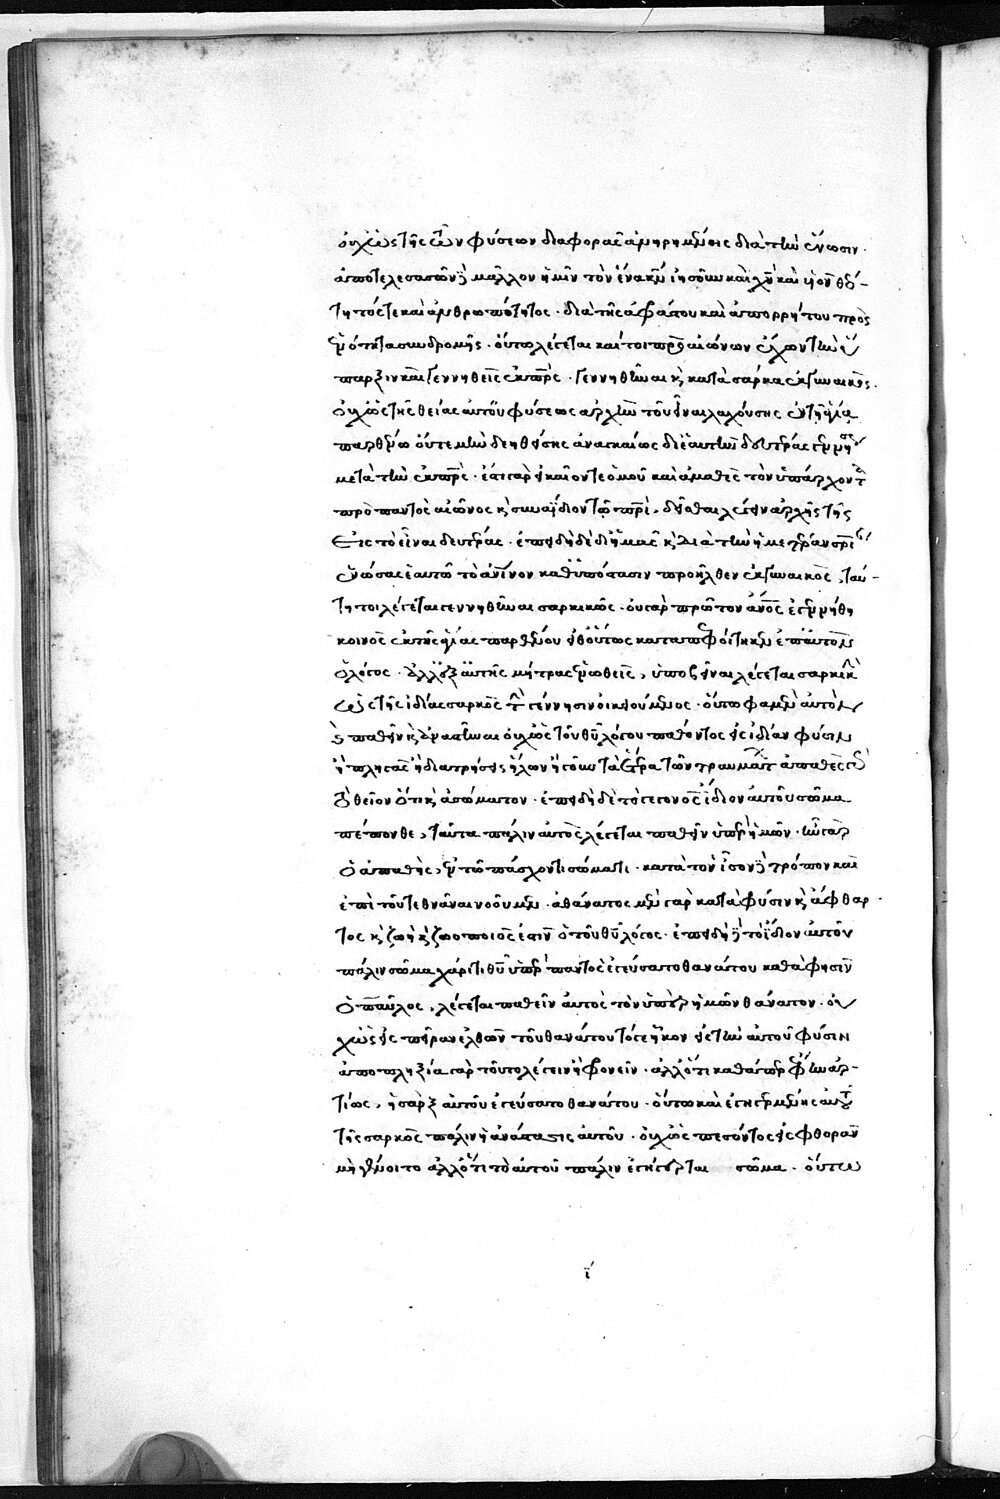 οὐχ ὡς τῆς τῶν φύσεων διαφορᾶς ἀνῃρημένης διὰ τὴν ἕνωσιν.
ἀποτελεσασῶν δὲ μᾶλλον ἡμῖν τὸν ἕνα κν̄ ἰησοῦν καὶ χν̄ καὶ υἱὸν θεό-
τητός τε καὶ ἀνθρωπότητος. διὰ τῆς ἀφράστου καὶ ἀπορρήτου πρὸς
ἑνότητα συνδρομῆς. οὕτω λέγεται καίτοι πρὸ αἰώνων ἔχων τὴν ὕ
παρξιν καὶ γεννηθεὶς ἐκ πρ̄ς. γεννηθῆναι κ̀ κατὰ σάρκα ἐκ γυναικός.
οὐχ ὡς τῆς θείας αὐτοῦ φύσεως ἀρχὴν τοῦ εἶναι λαχούσης ἐν τῇ ἁγία
παρθένω οὔτε μὴν δεηθείσης ἀναγκαίως δι' ἑαυτὴν δευτέρας γεννήσεως
μετὰ τὴν ἐκ πρ̄ς. ἔστι γὰρ εἰκαῖόν τε ὁμοῦ καὶ ἀμαθὲς τὸν ὑπάρχοντα
πρὸ παντὸς αἰῶνος κ̀ συναΐδιον τῷ πρ̄ὶ, δεῖσθαι λέγειν ἀρχῆς τῆς
εἰς τὸ εἶναι δευτέρας. ἐπειδὴ δὲ δι' ἡμᾶς κ̀ διὰ τὴν ἡμετέραν σρ̄ίαν
ἑνώσας ἑαυτῶ τὸ ἀν̄ινον καθ' ὑπόστασιν προῆλθεν ἐκ γυναικὸς, ταύ-
τη τοι λέγεται γεννηθῆναι σαρκικῶς. οὐ γὰρ πρῶτον ἄν̄ος ἐγεννήθη
κοινὸς ἐκ τῆς ἁγίας παρθένου εἶθ' οὕτως καταπεφοίτηκεν ἐπ' αὐτὸν
ὁ λόγος. ἀλλ' ἐξ αὐτῆς μήτρας ἑνωθεὶς, ὑπομεῖναι λέγεται σαρκικὴν
ὡς τῆς ἰδίας σαρκὸς τὴν γέννησιν οἰκειούμενος. οὕτω φαμὲν αὐτὸν
κ̀ παθεῖν κ̀ ἀναστῆναι οὐχ ὡς τοῦ θῡ λόγου παθόντος εἰς ἰδίαν φύσιν
ἢ πληγὰς ἢ διατρήσεις ἥλων ἤγουν τὰ ἕτερα τῶν τραυμάτων ἀπαθὲς γὰρ
τὸ θεῖον ὅτι κ̀ ἀσώματον. ἐπειδὴ δὲ τὸ γεγονὸς ἴδιον αὐτοῦ σῶμα
πέπονθε, ταῦτα πάλιν αὐτὸς λέγεται παθεῖν ὑπὲρ ἡμῶν. ἦν γὰρ
ὁ ἀπαθὴς, ἐν τῶ πάσχοντι σώματι. κατὰ τὸν ἴσον δὲ τρόπον καὶ
ἐπὶ τοῦ τεθνάναι νοοῦμεν. ἀθάνατος μὲν γὰρ κατὰ φύσιν κ̀ ἄφθαρ
τος κ̀ ζωὴ κ̀ ζωοποιός ἐστιν ὁ τοῦ θῡ λόγος. ἐπειδὴ δὲ τὸ ἴδιον αὐτοῦ
πάλιν σῶμα χάριτι θῡ ὑπὲρ παντὸς ἐγεύσατο θανάτου καθά φησιν
ὁ παῦλος, λέγεται παθεῖν αὐτὸς τὸν ὑπὲρ ἡμῶν θάνατον. οὐ
χ ὡς εἰς πεῖραν ἐλθὼν τοῦ θανάτου τό γε ἧκον εἰς τὴν αὐτοῦ φύσιν
ἀποπληξία γὰρ τοῦτο λέγειν ἢ φρονεῖν. ἀλλ' ὅτι καθάπερ ἔφην ἀρ-
τίως, ἡ σὰρξ αὐτοῦ ἐγεύσατο θανάτου. οὕτω καὶ ἐγηγερμένης αὐτοῦ
τῆς σαρκὸς πάλιν ἡ ἀνάστασις αὐτοῦ. οὐχ ὡς πεσόντος εἰς φθορὰν
μὴ γένοιτο ἀλλ' ὅτι τὸ αὐτοῦ πάλιν ἐγήγερται σῶμα. οὕτω
ϊ